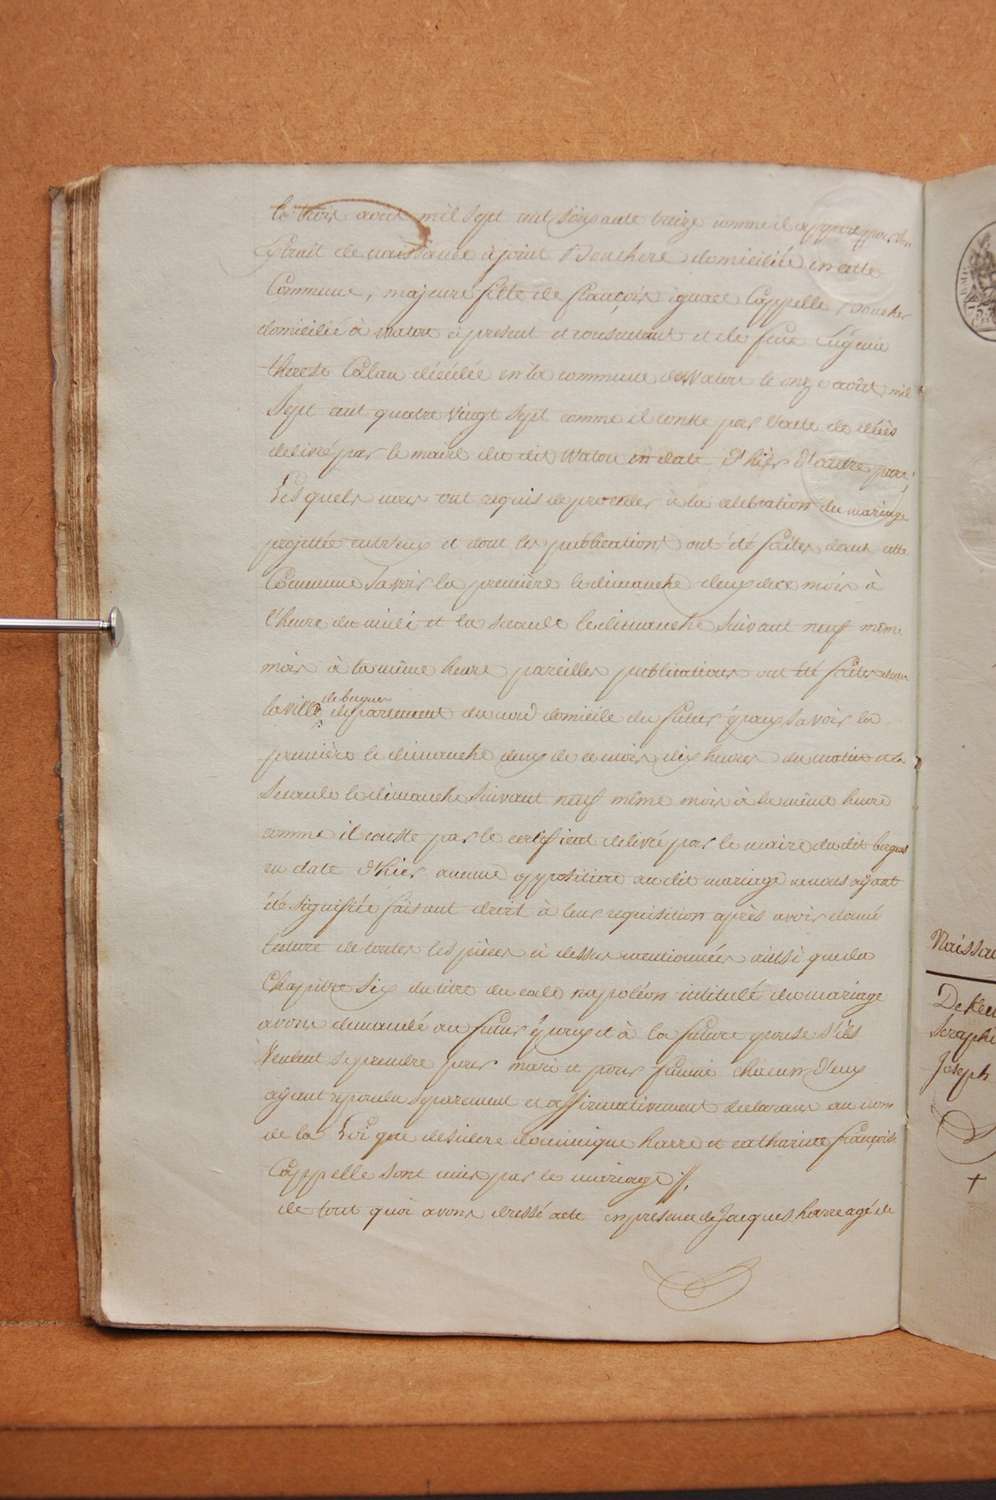 le trois avril mil sept cent soixante treize comme il appert par son
Extrait de naissance ajoint Bouchere domiciliée en cette
Commune, majeure fille de françois ignace Cappelle Boucher
domicilié à Watou à present et consentant et de feue Eugenie
therese Colau décédée en la commune de Watou le onze août mil
Sept cent quatre vingt sept comme il conste par l'acte de décès
delivré par le maire du dit Watou en date d'hier d'autre part,
Lesquels nous ont requis de proceder à la célébration du mariage
projettée entr'eux et dont les publications ont été faites dans cette
Commune Savoir la première le dimanche deux de ce mois à
l'heure de midi et la seconde le dimanche suivant neuf même
mois à la même heure pareilles publications ont été faites dans
de bergues
la ville, departement du nord domicile du futur Epoux Savoir la
première le dimanche deux de ce mois dix heures du matin et la
Seconde le dimanche suivant neuf même mois à la même heure
comme il conste par le certificat delivré par le maire du dit bergues
en date d'hier aucune opposition au dit mariage ne nous ayant
été Signifiée faisant droit à leur requisition après avoir donné
lecture de toutes les pièces ci dessus mentionnées aussi que du
Chapitre Six du titre du code napoléon intitulé du mariage
avons demandé au futur Epoux et à la future epouse S'ils
Veulent Se prendre pour mari et pour femme chacun d'eux
ayant repondu Separement et affirmativement declarons au nom
de la Loi que desidere dominique harre et catharine françoise
Cappelle sont unis par le mariage //.
de tout quoi avons dressé acte en presence de Jacques harre agé de
Naissa
Deke
Seraph
Joseph
+